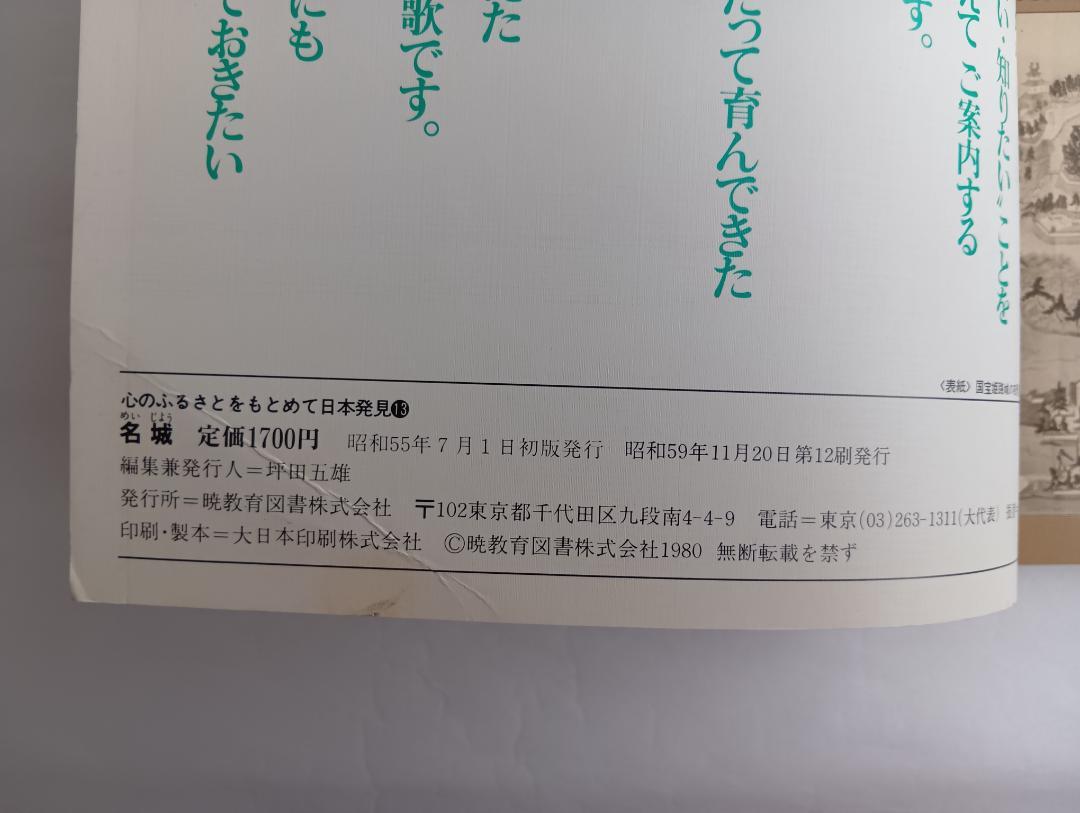 い・知りたい〟ことを
えて ご案内する
す。
たって育んできた
た
歌です。
にも
ておきたい
〈表紙〉国宝姫路城の
心のふるさとをもとめて日本発見⓭
めい じょう
名城 定価1700円 昭和55年7月1日初版発行 昭和59年11月20日第12刷発行
編集兼発行人＝坪田五雄
発行所＝暁教育図書株式会社 〒102東京都千代田区九段南4-4-9 電話＝東京(03)263-1311(大代表)
印刷・製本＝大日本印刷株式会社 Ⓒ暁教育図書株式会社1980 無断転載を禁ず